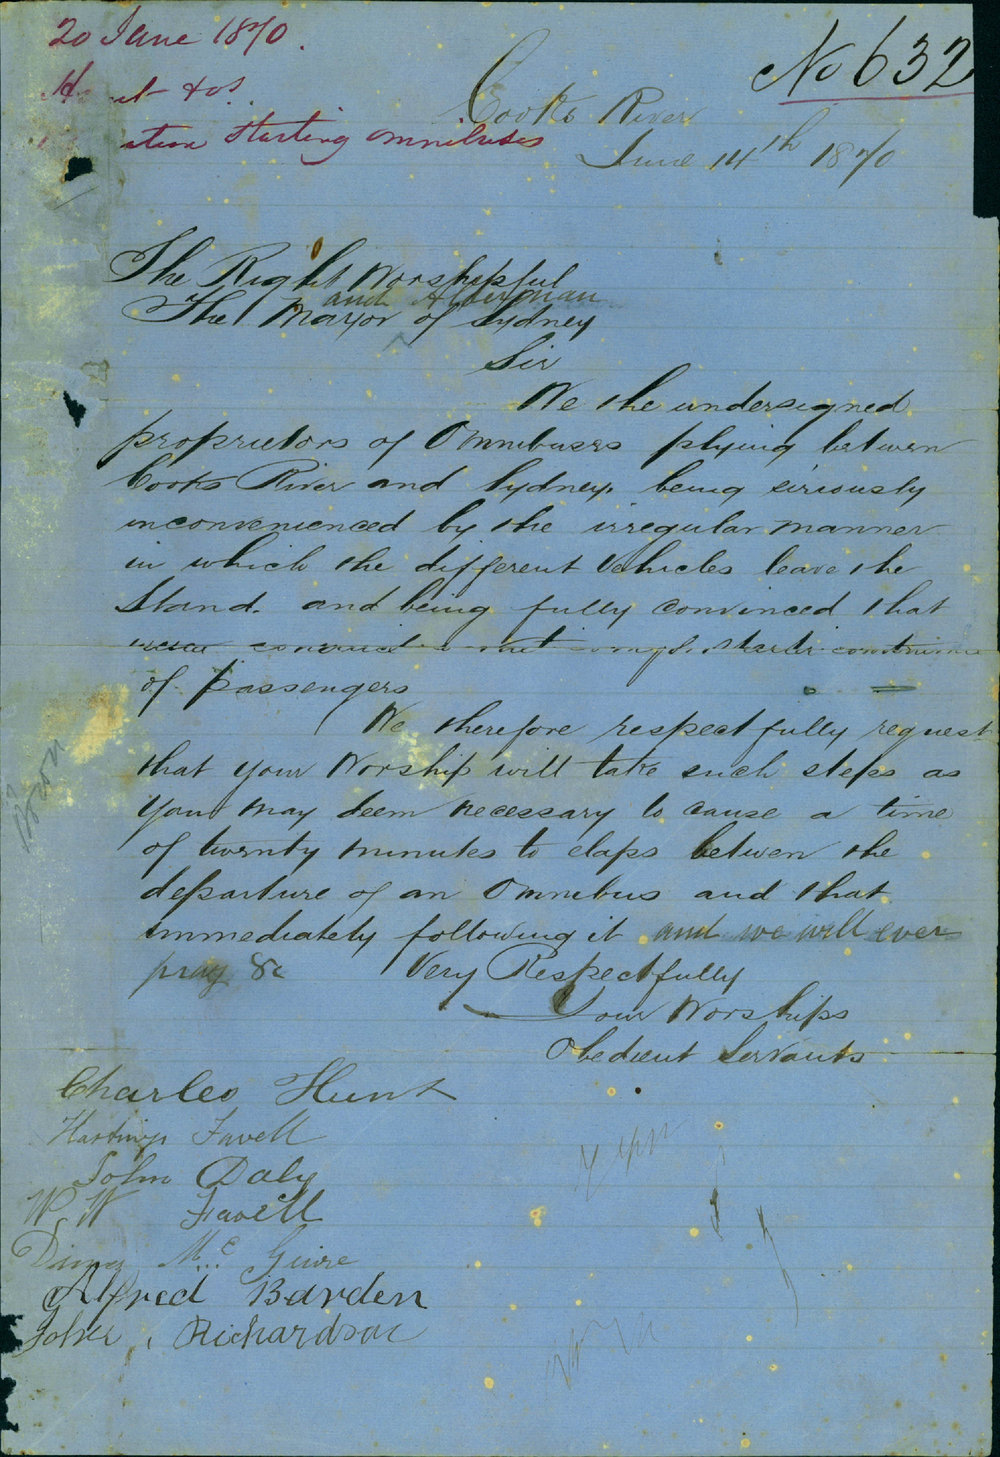 20 June 1870.
No 632
Hunt & os
ation Starting Omnibuses
Cooks River
June 14th 1870
The Right Worshipful
and Alderman
The Mayor of Sydney
Sir
We the undersigned
proprietors of Omnibuses plying between
Cooks River and Sydney, being seriously
inconvenienced by the irregular manner
in which the different Vehicles leave the
Stand. and being fully convinced that
of passengers
We therefore respectfully request
that your Worship will take such steps as
you may deem necessary to cause a time
of twenty minutes to elaps between the
departure of an Omnibus and that
immediately following it and we will ever
pray &c Very Respectfully
Your Worships
Obedient Servants
Charles Hunt
Hastings Favell
John Daly
W W Favell
Mc Guire
Alfred Barden
John Richardson